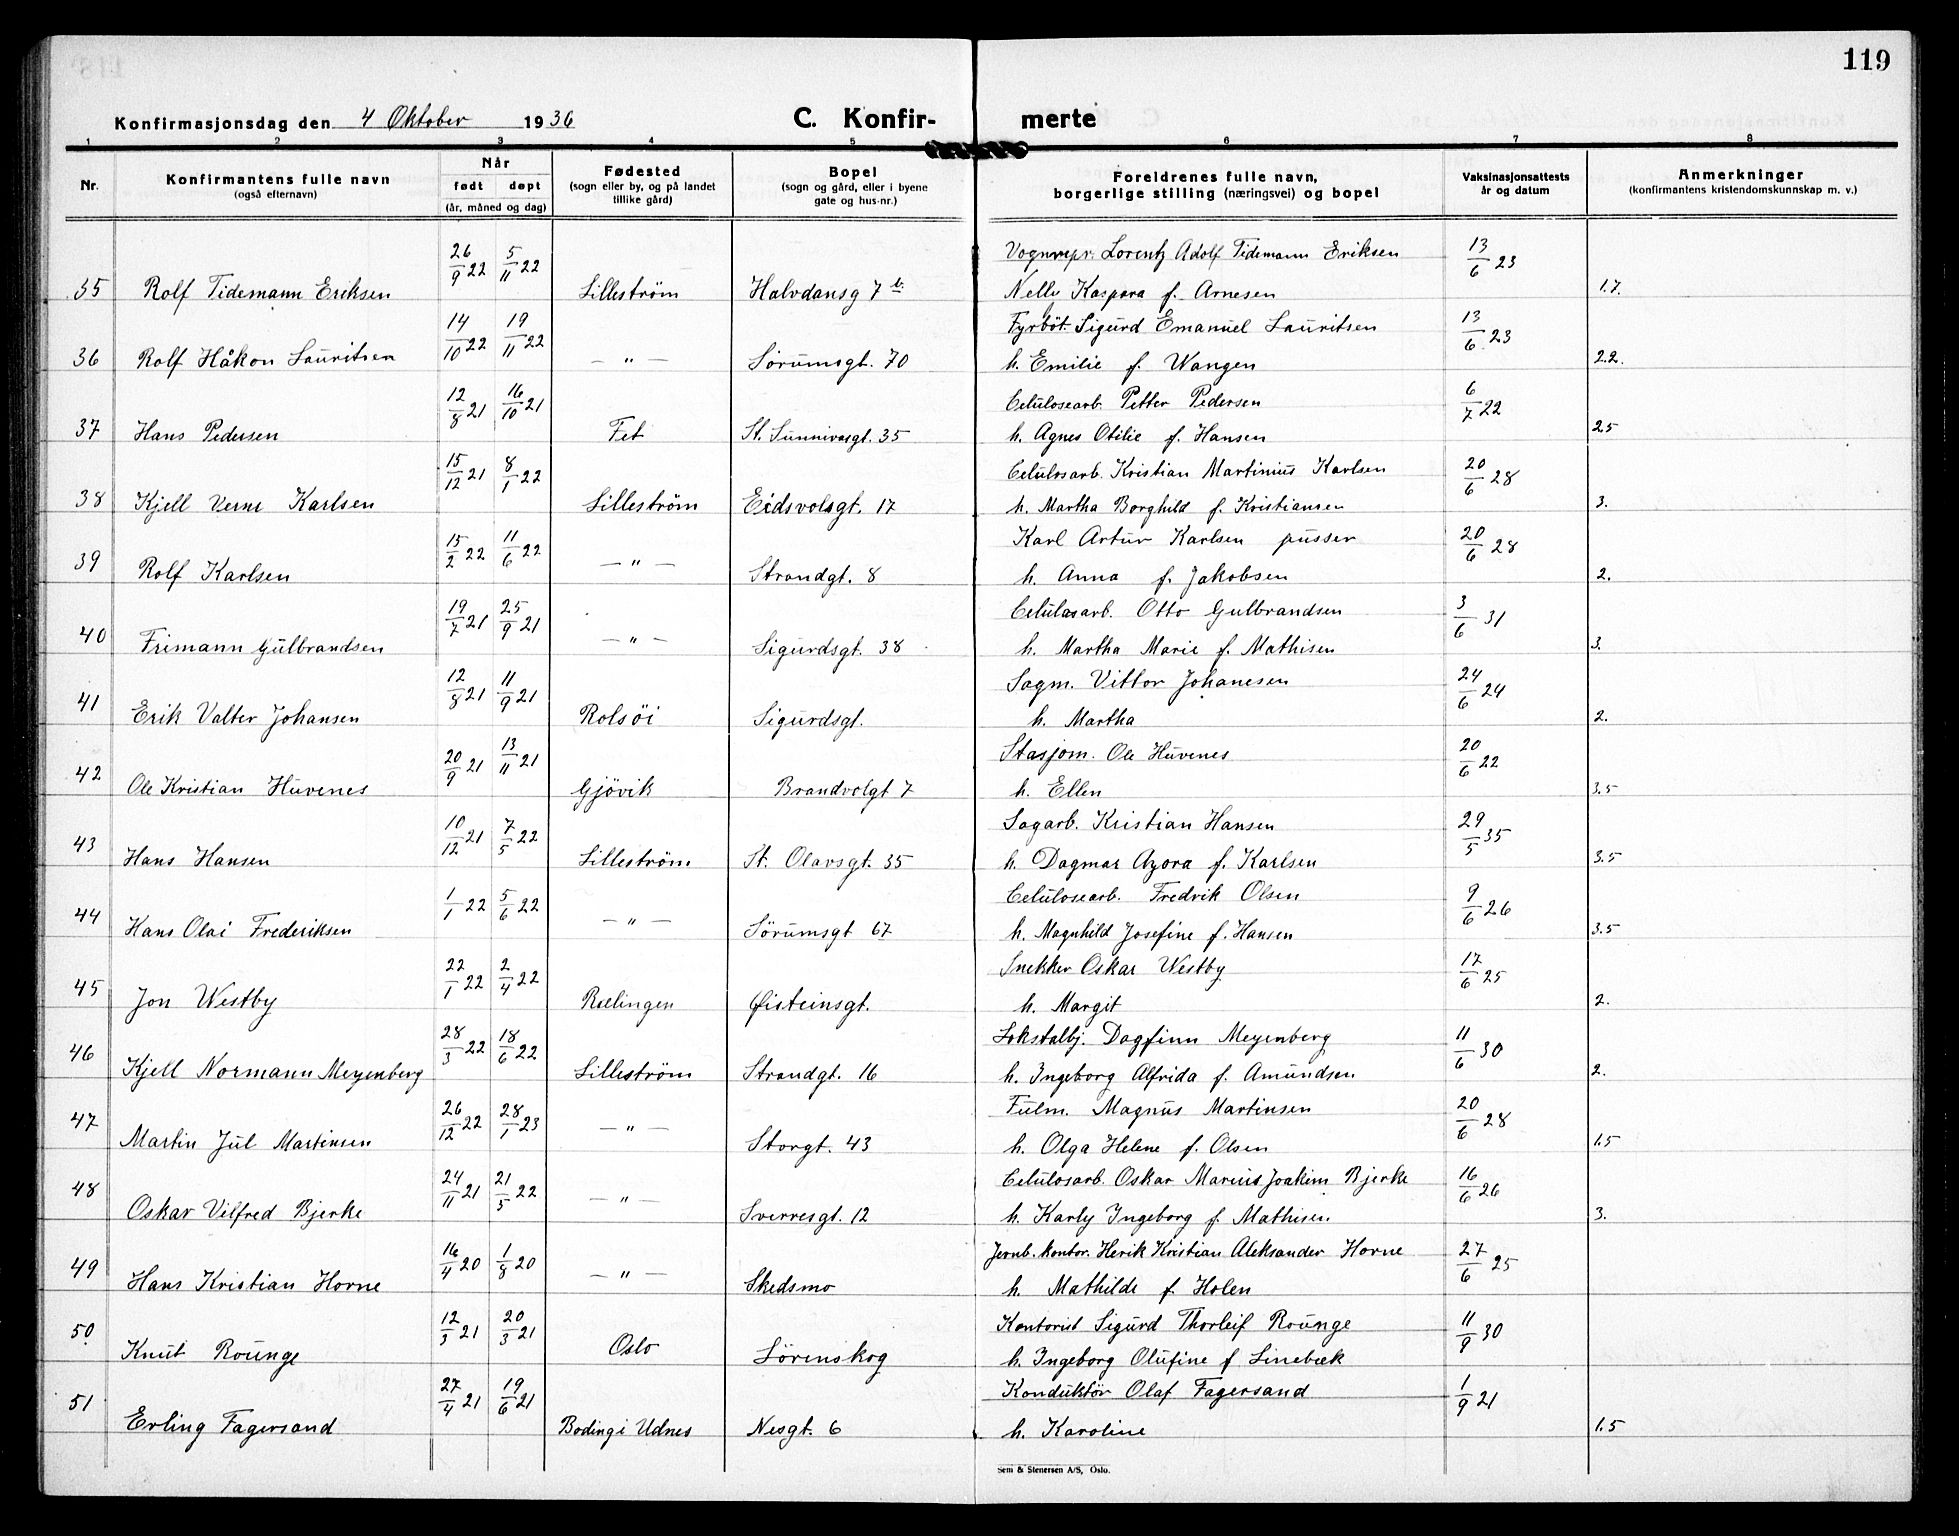 119
Konfirmasjonsdag den 4 Oktober 1936 C. Konfir- merte
1 2 3 4 5 6 7 8
Nr. Konfirmantens fulle navn (også efternavn) Når født døpt (år, måned og dag) Fødested (sogn eller by, og på landet tillike gård) Bopel (sogn og gård, eller i byene gate og hus-nr.) Foreldrenes fulle navn, borgerlige stilling (næringsvei) og bopel Vaksinasjonsattests år og datum Anmerkninger (konfirmantens kristendomskunnskap m. v.)
26/9 22 5/11 22 Vognmpr. Lorentz Adolf Tidemann Eriksen 13/6 23
35 Rolf Tidemann Eriksen Lilleström Halvdansg 7 b. Nelly Kaspara f. Arnesen 1.7.
14/10 22 19/11 22 Fyrböt. Sigurd Emanuel Lauritsen 13/6 23
36 Rolf Håkon Lauritsen — " — Sörumsgt. 70 h. Emilie f. Wangen 2.2.
12/8 21 16/10 21 Celulosearb. Petter Pedersen 6/7 22
37 Hans Pedersen Fet St. Sunnivasgt. 35 h. Agnes Otilie f. Hansen 2.5
15/12 21 8/1 22 Celulosarb. Kristian Martinius Karlsen 20/6 28
38 Kjell Verne Karlsen Lilleström Eidsvolsgt. 17 h. Martha Borghild f. Kristiansen 3.
15/2 22 11/6 22 Karl Artur Karlsen pusser 20/6 28
39 Rolf Karlsen — " — Strandgt. 8 h. Anna f. Jakobsen 2.
19/7 21 25/9 21 Celulosarb. Otto Gulbrandsen 3/6 31
40 Frimann Gulbrandsen — " — Sigurdsgt. 38 h. Martha Marie f. Mathisen 3.
12/8 21 11/9 21 Sagm. Vittor Johanesen 24/6 24
41 Erik Valter Johansen Rolsöi Sigurdsgt. h. Martha 2.
20/9 21 13/11 21 Stasjom. Ole Huvenes 20/6 22
42 Ole Kristian Huvenes Gjövik Brandvolgt 7 h. Ellen 3.5
10/12 21 7/5 22 Sagarb. Kristian Hansen 29/5 35
43 Hans Hansen Lilleström St. Olavsgt. 35 h. Dagmar Azora f. Karlsen 3.5
1/1 22 5/6 22 Celulosearb. Fredrik Olsen 9/6 26
44 Hans Olai Frederiksen — " — Sörumsgt 67 h. Magnhild Josefine f. Hansen 3.5
22/1 22 2/4 22 Snekker Oskar Westby 17/6 25
45 Jon Westby Rælingen Øisteinsgt. h. Margit 2.
28/3 22 18/6 22 Lokstalbj. Dagfinn Meyenberg 11/6 30
46 Kjell Normann Meyenberg Lilleström Strandgt. 16 h. Ingeborg Alfrida f. Amundsen 2.
26/12 22 28/1 23 Fulm. Magnus Martinsen 20/6 28
47 Martin Jul Martinsen — " — Storgt. 43 h. Olga Helene f. Olsen 1.5
24/11 21 21/5 22 Celulosarb. Oskar Marius Joakim Bjerke 16/6 26
48 Oskar Vilfred Bjerke — " — Sverresgt. 12 h. Karly Ingeborg f. Mathisen 3.
16/4 20 1/8 20 Jernb. kontor. Herik Kristian Aleksander Horne 27/6 25
49 Hans Kristian Horne — " — Skedsmo h. Mathilde f. Holen
12/3 21 20/3 21 Kontorist Sigurd Thorleif Rounge 11/9 30
50 Knut Rounge Oslo Lörenskog h. Ingeborg Olufine f Linebæk
27/4 21 19/6 21 Konduktör Olaf Fagersand 1/9 21
51 Erling Fagersand Boding i Udnes Nesgt. 6 h. Karoline 1.5
Sem & Stenersen A/S, Oslo.